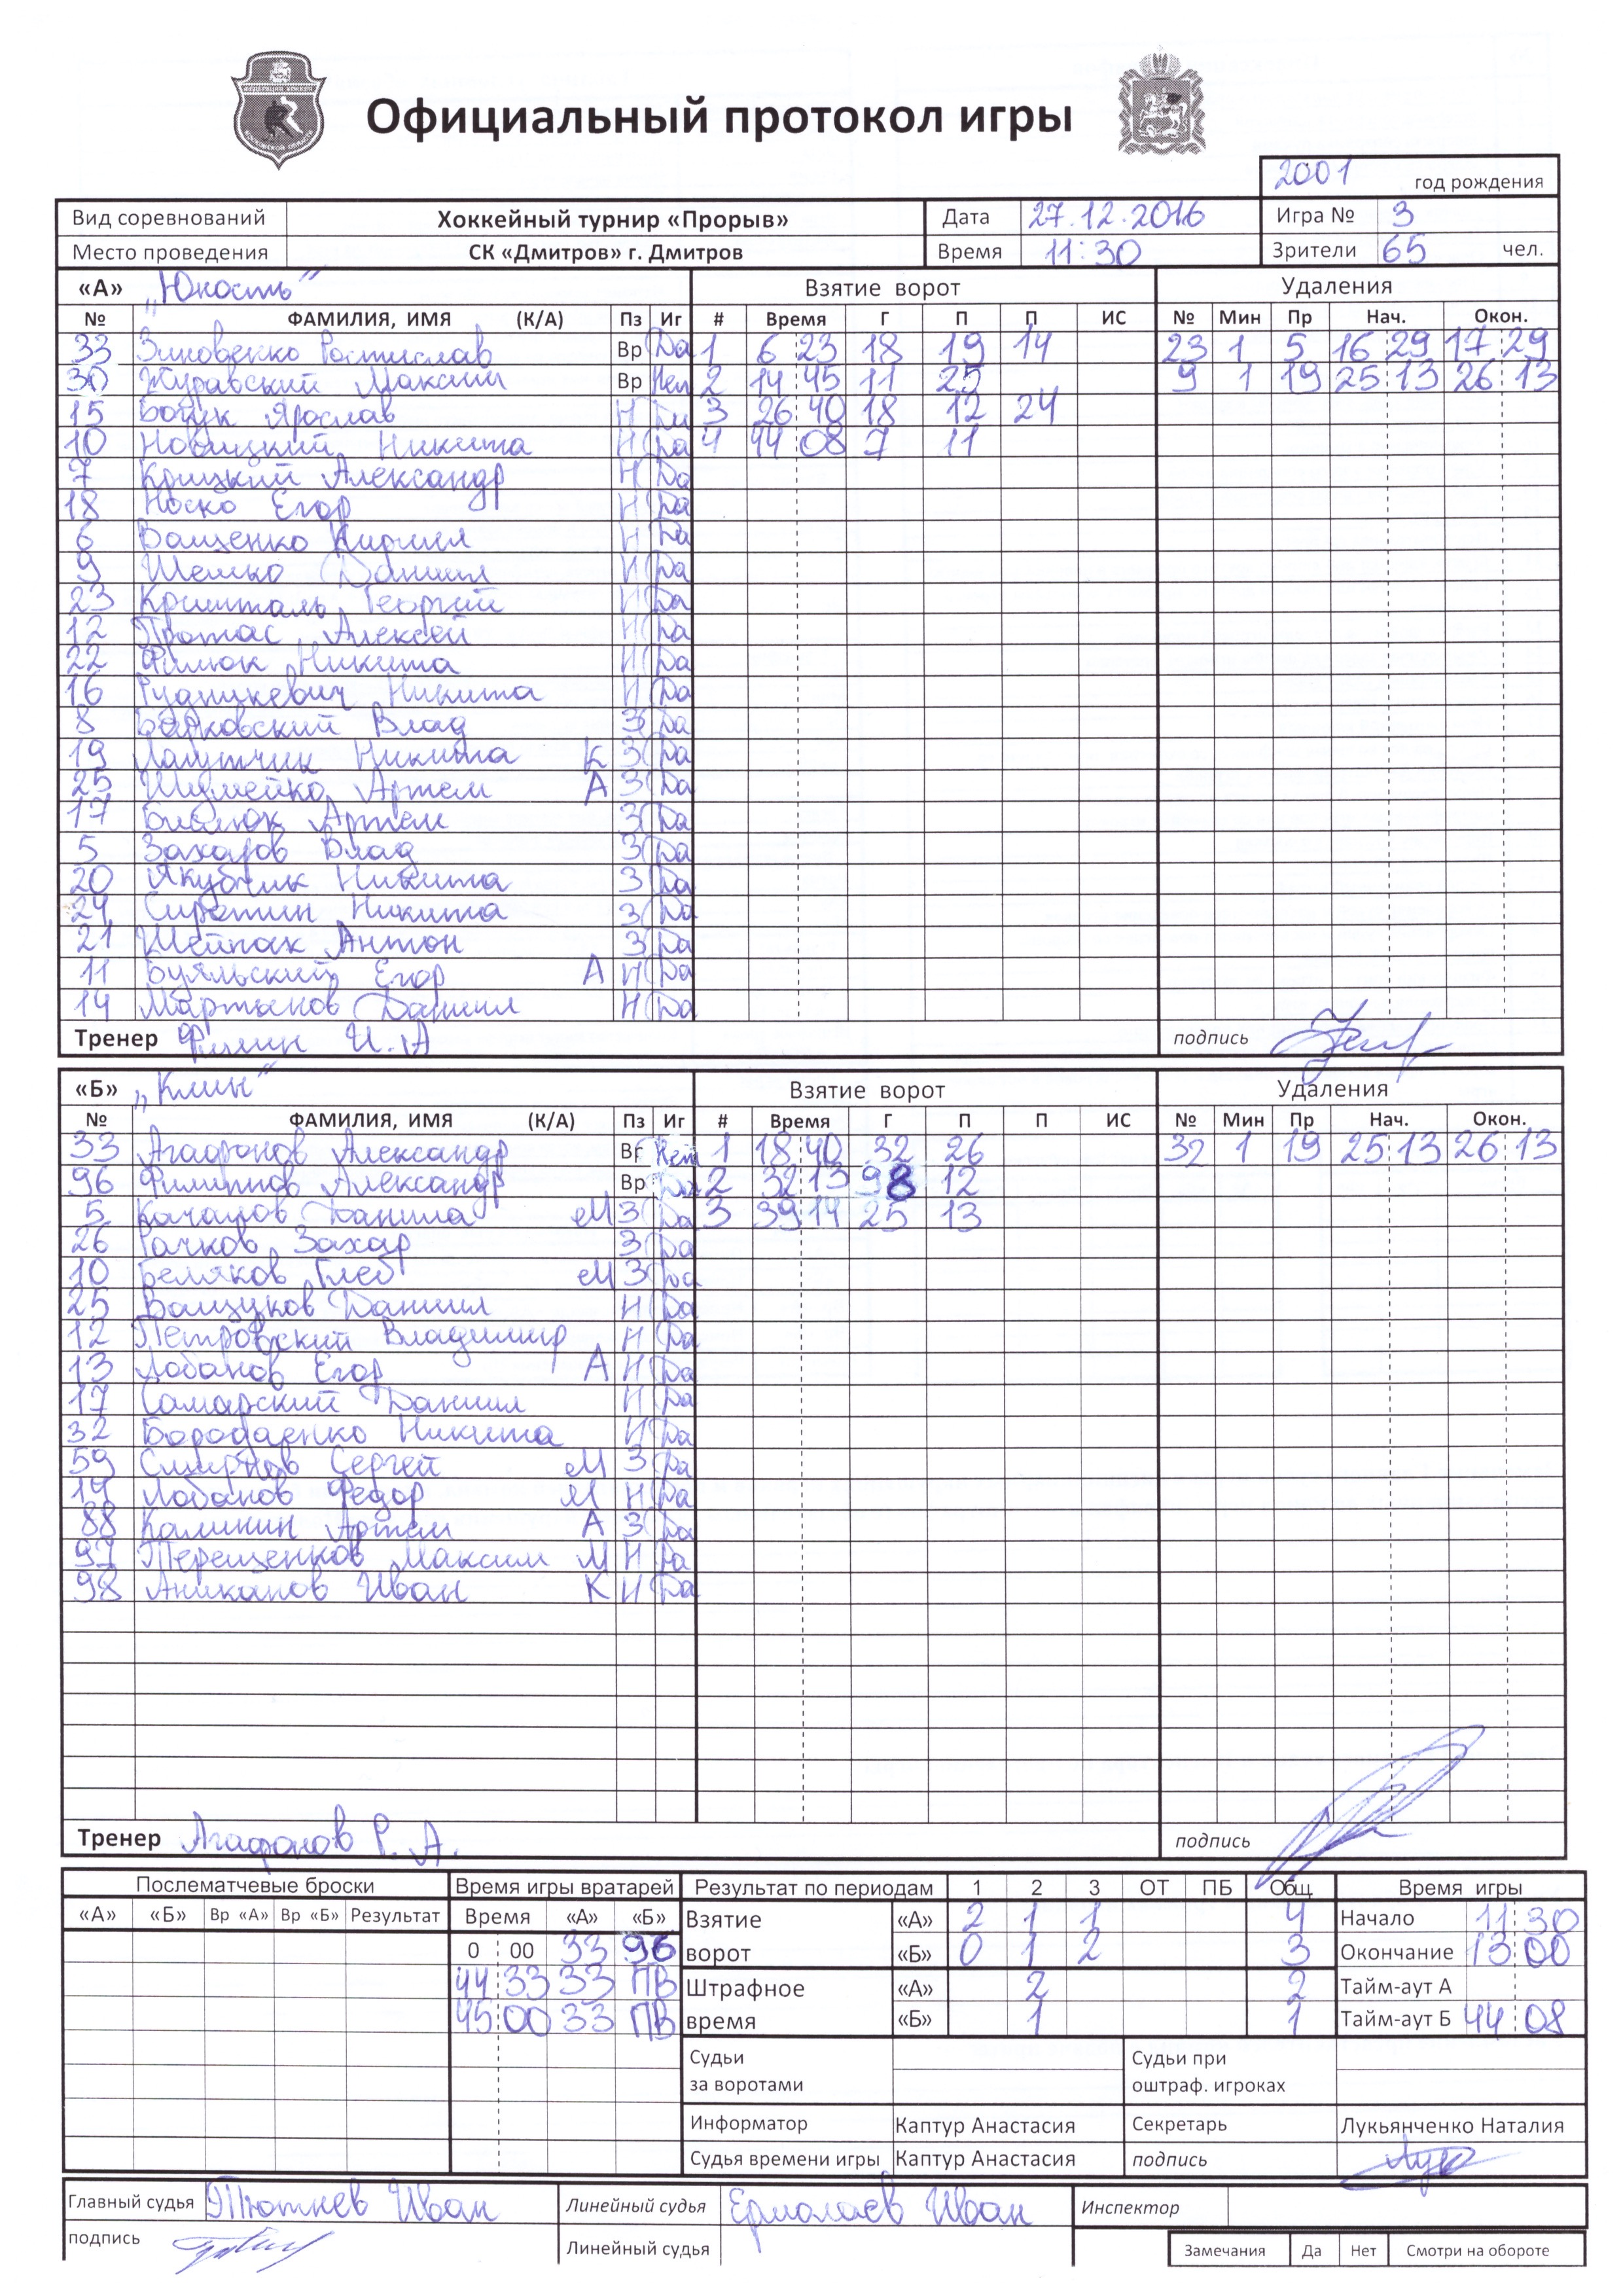 Официальный протокол игры
2001 год рождения
Вид соревнований Хоккейный турнир «Прорыв» Дата 27.12.2016 Игра № 3
Место проведения СК «Дмитров» г. Дмитров Время 11:30 Зрители 65 чел.
«А» „Юность“ Взятие ворот Удаления
№ ФАМИЛИЯ, ИМЯ (К/А) Пз Иг # Время Г П П ИС № Мин Пр Нач. Окон.
33 Зиновенко Ростислав Вр Да 1 6 23 18 19 14 23 1 5 16 29 17 29
30 Журавский Максим Вр Нет 2 14 45 11 25 9 1 19 25 13 26 13
15 Ярослав Н Да 3 26 40 18 12 24
10 Новицкий Никита Н Да 4 44 08 7 11
7 Крицкий Александр Н Да
18 Носко Егор Н Да
6 Ващенко Кирилл Н Да
9 Даниил Н Да
23 Кришталь Георгий Н Да
12 Протас Алексей Н Да
22 Филюк Никита Н Да
16 Рудницкевич Никита Н Да
8 Барковский Влад З Да
19 Лапутчик Никита К З Да
25 Шумейко Артем А З Да
17 Артем З Да
5 Захаров Влад З Да
20 Якубчик Никита З Да
24 Сиротин Никита З Да
21 Шейпак Антон З Да
11 Буяльский Егор А Н Да
14 Мартынов Даниил Н Да
Тренер Филин И.А подпись
«Б» „Клин“ Взятие ворот Удаления
№ ФАМИЛИЯ, ИМЯ (К/А) Пз Иг # Время Г П П ИС № Мин Пр Нач. Окон.
33 Агафонов Александр Вр Нет 1 18 40 32 26 32 1 19 25 13 26 13
96 Филиппов Александр Вр Да 2 32 13 98 12
5 Качанов Данила М З Да 3 39 14 25 13
26 Рачков Захар З Да
10 Беляков Глеб М З Да
25 Ващуков Даниил Н Да
12 Петровский Владимир Н Да
13 Лобанов Егор А Н Да
17 Самарский Даниил Н Да
32 Бородаенко Никита Н Да
59 Смирнов Сергей М З Да
19 Лобанов Федор М Н Да
88 Калинин Артем А З Да
97 Терещенков Максим М Н Да
98 Аниканов Иван К Н Да
Тренер Агафонов Р. А. подпись
Послематчевые броски Время игры вратарей Результат по периодам 1 2 3 ОТ ПБ Общ Время игры
«А» «Б» Вр «А» Вр «Б» Результат Время «А» «Б» Взятие «А» 2 1 1 4 Начало 11 30
0 00 33 96 ворот «Б» 0 1 2 3 Окончание 13 00
44 33 33 ПВ Штрафное «А» 2 2 Тайм-аут А
45 00 33 ПВ время «Б» 1 1 Тайм-аут Б 44 08
Судьи за воротами Судьи при оштраф. игроках
Информатор Каптур Анастасия Секретарь Лукьянченко Наталия
Судья времени игры Каптур Анастасия подпись
Главный судья Тютнев Иван Линейный судья Ермолаев Иван Инспектор
подпись Линейный судья Замечания Да Нет Смотри на обороте